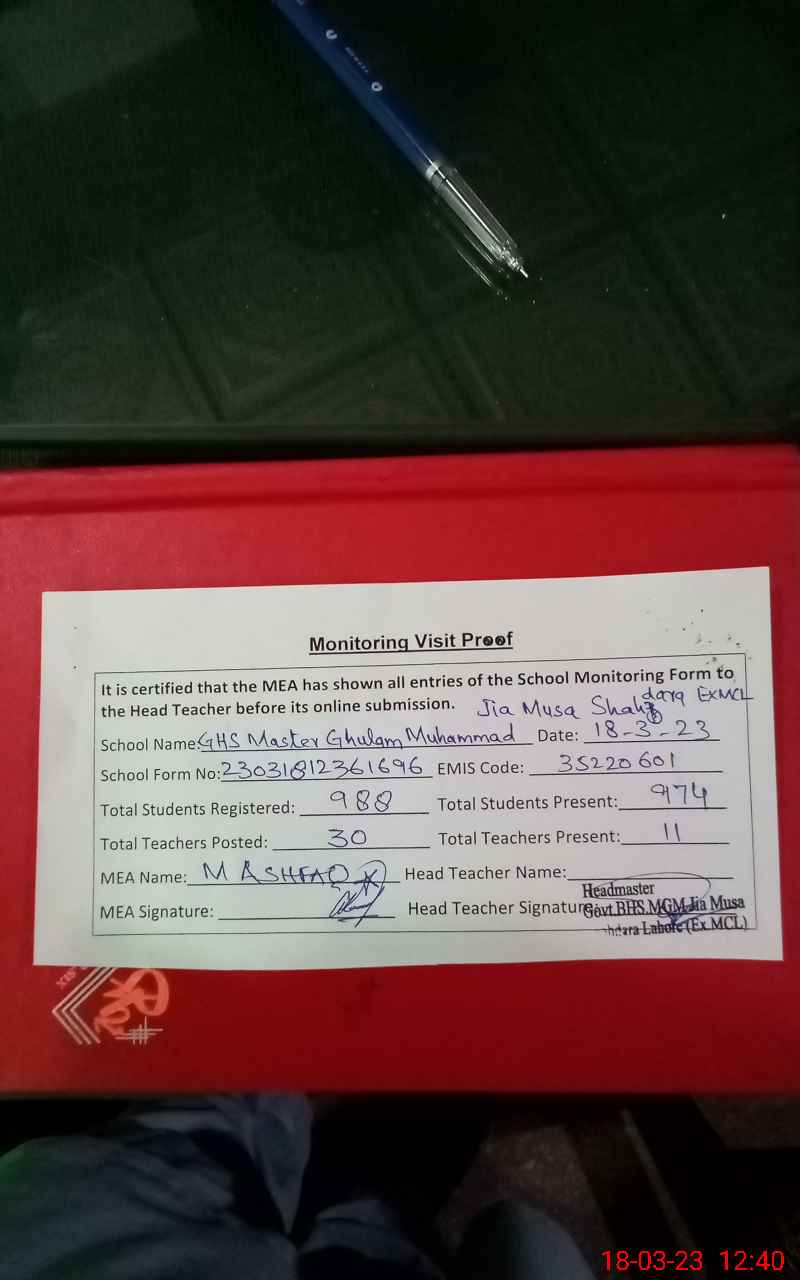 Monitoring Visit Proof
It is certified that the MEA has shown all entries of the School Monitoring Form to
the Head Teacher before its online submission.
Jia Musa Shahdara ExMCL
School Name: GHS Master Ghulam Muhammad Date: 18-3-23
School Form No: 23031812361696 EMIS Code: 35220601
Total Students Registered: 988 Total Students Present: 974
Total Teachers Posted: 30 Total Teachers Present: 11
MEA Name: M ASHFAQ Head Teacher Name:
MEA Signature: Head Teacher Signature:
Headmaster
Govt.BHS.MGM Jia Musa
hdara Lahore (Ex.MCL)
18-03-23 12:40